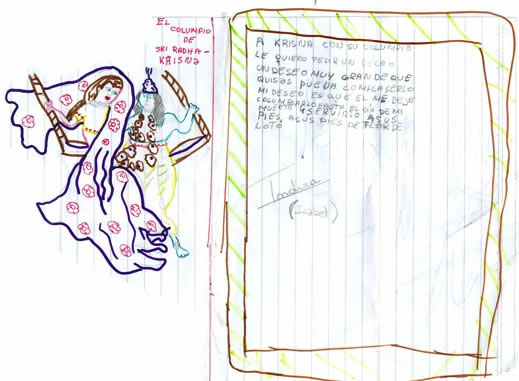 EL
COLUMPIO
DE
SRI RADHA -
KRISNA
A KRISNA CON SU COLUMPIO
LE QUIERO PEDIR UN LOGRO
UN DESEO MUY GRANDE QUE
QUISAS PUEDA COMPLASERLO
MI DESEO ES QUE EL ME DEJE
COLUMPIARLO HASTA EL FIN DE MI
MUERTE Y SERVIRLO A SUS
PIES, A SUS PIES DE FLOR DE
LOTO
(Isabel)